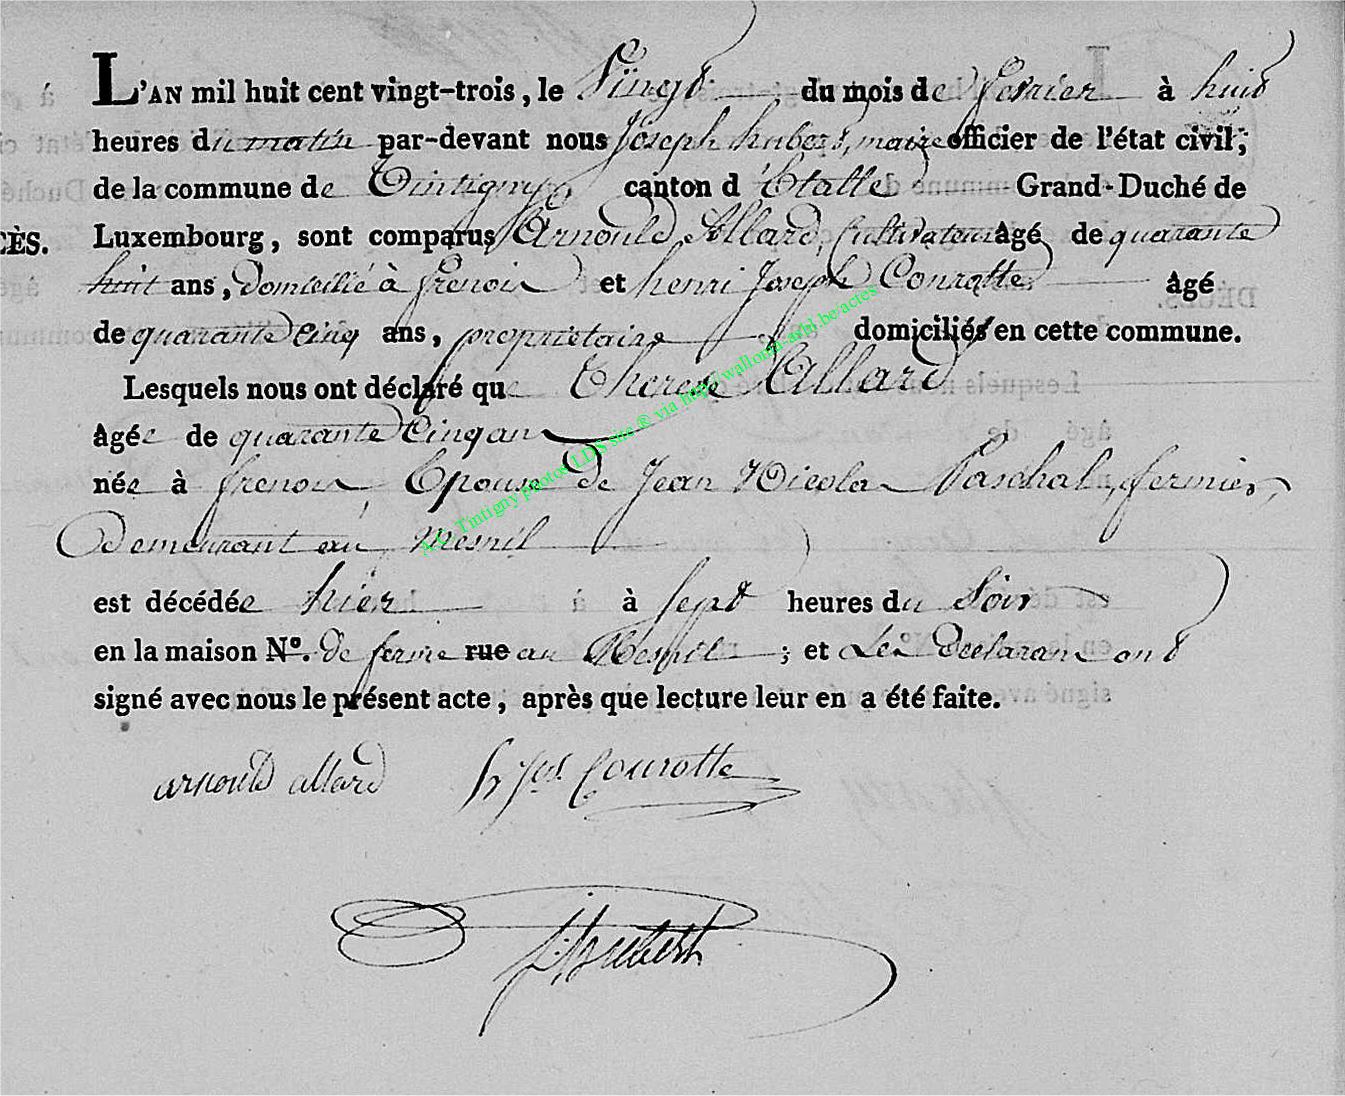 L'AN mil huit cent vingt-trois, le Vingt du mois de fevrier à huit
heures du matin par-devant nous Joseph hubert, maire officier de l'état civil,
de la commune de Tintigny canton d'Etalle Grand-Duché de
CÈS. Luxembourg, sont comparus Arnould Allard, Cultivateur âgé de quarante
huit ans, Domicilié à frenois et henri Joseph Courotte âgé
de quarante Cinq ans, proprietaire domiciliés en cette commune.
Lesquels nous ont déclaré que Therese Allard
âgée de quarante Cinq ans
née à frenois, Epouse de Jean Nicolas Paschal, fermier,
Demeurant au Mesnil
est décédée hier à Sept heures du Soir
en la maison N°. de ferme rue au Mesnil ; et Les Declarans ont
signé avec nous le présent acte, après que lecture leur en a été faite.
arnould allard h Jph Courotte
J: hubert
A.C. Tintigny photos LDS site ® via http://wallonia-asbl.be/actes